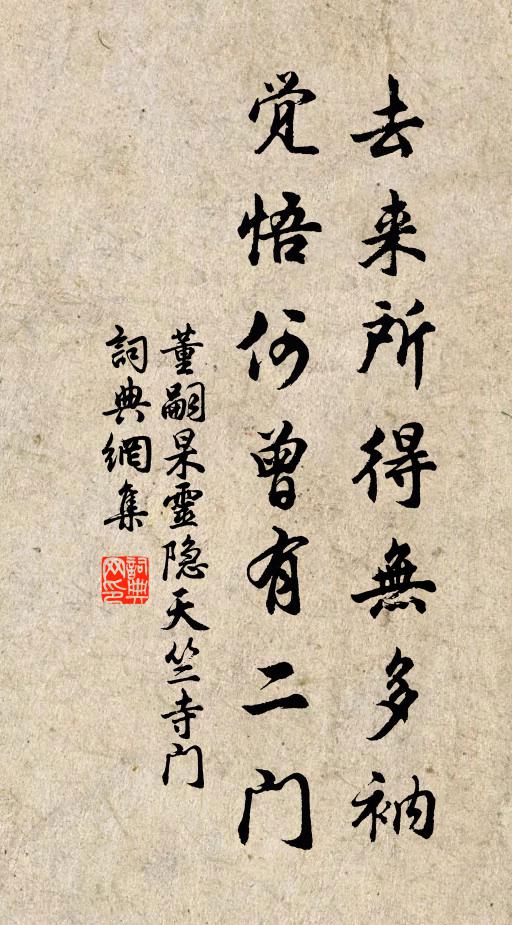 去来所得無多衲
覚悟何曾有二门
董嗣杲靈隐天竺寺门
詞典網集
詞典网印